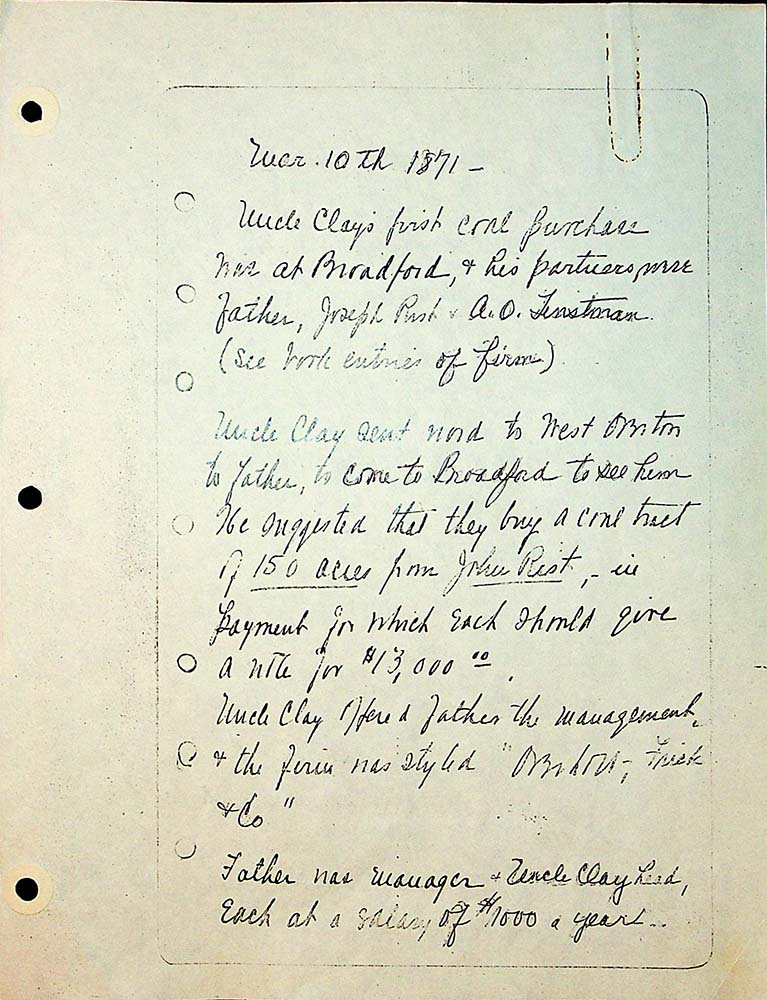 Mar. 10th 1871 –
Uncle Clay's first coal purchase
was at Broadford, & his partners were
Father, Joseph Rist & A.O. Tinstman.
(See book entries of firm)
Uncle Clay sent word to West Overton
to Father, to come to Broadford to see him
He suggested that they buy a coal tract
of 150 acres from John Rist, – in
payment for which each should give
a note for $13,000 00.
Uncle Clay offered Father the management,
& the firm was styled " Overholt, Frick
& Co "
Father was manager & Uncle Clay head,
Each at a salary of $1000 a year –